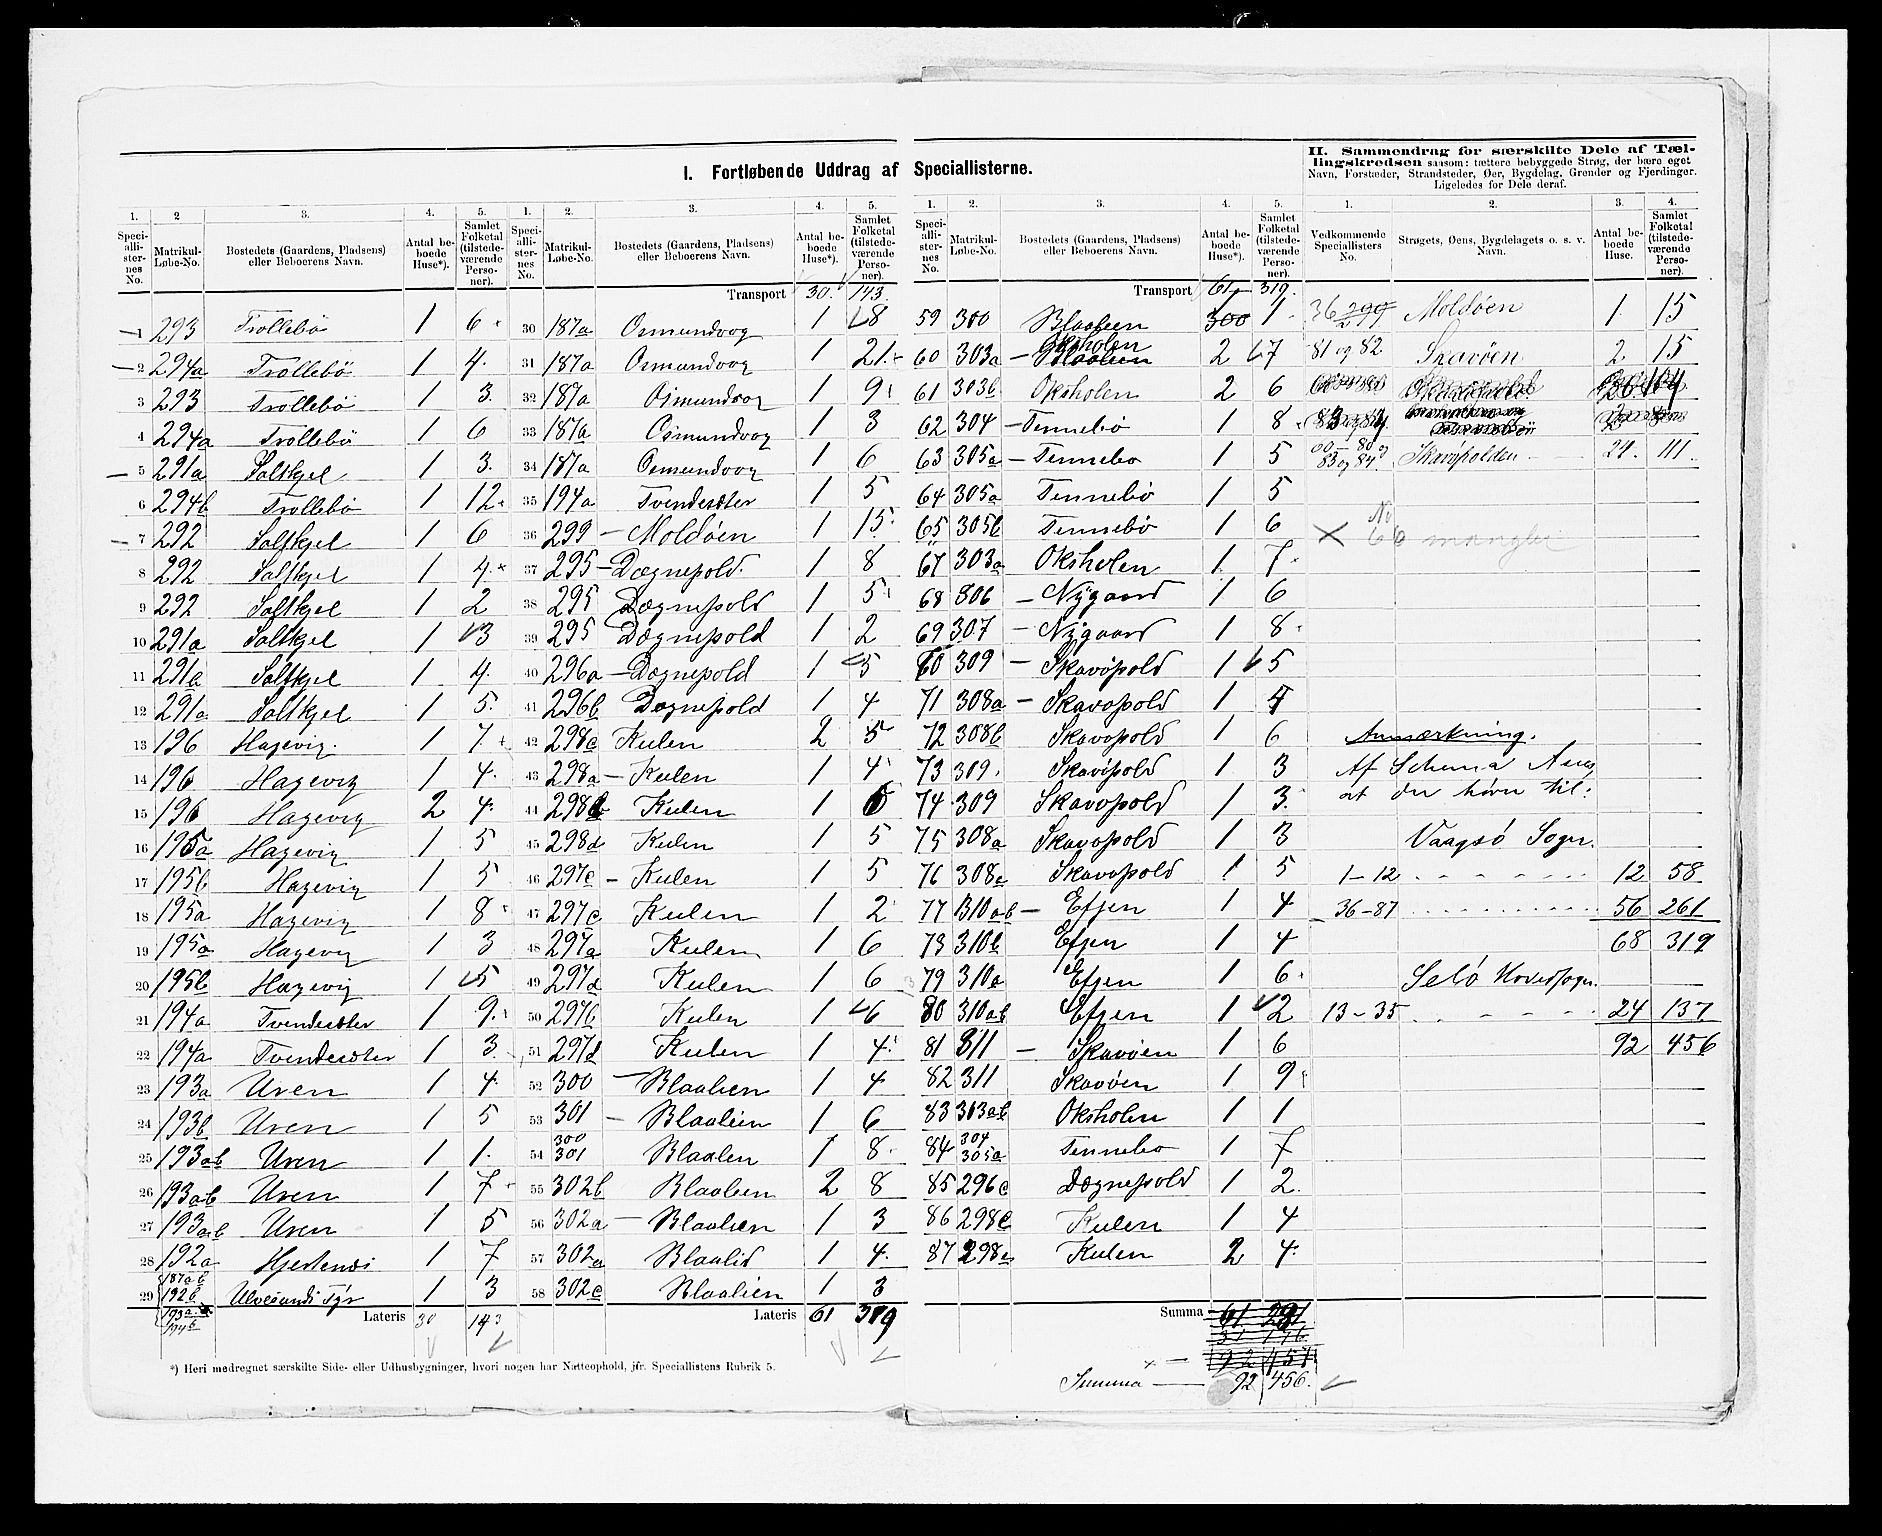 I. Fortløbende Uddrag af Speciallisterne.
1. 2 3. 4. 5.
Speciallisternes No. Matrikul-Løbe-No. Bostedets (Gaardens, Pladsens) eller Beboerens Navn. Antal beboede Huse*). Samlet Folketal (tilstedeværende Personer).
1 293 Trollebö 1 6
2 294a Trollebö 1 4.
3 293 Trollebö 1 3.
4 294a Trollebö 1 6
5 291a Saltkjel 1 3.
6 294b Trollebö 1 12
7 292 Saltkjel 1 6
8 292 Saltkjel 1 4.
9 292 Saltkjel 1 2
10 291a Saltkjel 1 3
11 291a Saltkjel 1 4.
12 291a Saltkjel 1 5.
13 196 Hagevig. 1 7.
14 196 Hagevig 1 4.
15 196 Hagevig 2 4.
16 195a Hagevig 1 5
17 195b Hagevig 1 5
18 195a Hagevig 1 8
19 195a Hagevig 1 3
20 195b Hagevig 1 5
21 194a Tvendesæter 1 9.
22 194a Tvendesæter 1 3.
23 193a Uren 1 4.
24 193b Uren 1 5
25 193ab Uren 1 1.
26 193ab Uren 1 7
27 193ab Uren 1 5
28 192a Hjertenæs 1 7
29 187ab 192b Ulvesunds Fyr 1 3
Lateris 30 143
*) Heri medregnet særskilte Side- eller Udhusbygninger, hvori nogen har Natteophold, jfr. Speciallistens Rubrik 5.
1. 2. 3. 4. 5.
Speciallisternes No. Matrikul-Løbe-No. Bostedets (Gaardens, Pladsens) eller Beboerens Navn. Antal beboede Huse*). Samlet Folketal (tilstedeværende Personer).
Transport 30. 143.
30 187a Osmundvog 1 8
31 187a Osmundvog 1 21.
32 187a Osmundvog 1 9
33 187a Osmundvog 1 3
34 187a Osmundvog 1 6
35 194a Tvendesæter 1 5
36 299 – Moldöen 1 15.
37 295 – Dægnepold. 1 8
38 295 Dægnepold 1 5
39 295 Dægnepold 1 2
40 296a – Dægnepold 1 5
41 296b Dægnepold 1 4
42 298c Kulen 2 5
43 298a – Kulen 1 4
44 298b Kulen 1 6
45 298d Kulen 1 5
46 297c – Kulen 1 5
47 297c Kulen 1 2
48 297a Kulen 1 6
49 297d Kulen 1 6
50 297b Kulen 1 6
51 297d Kulen 1 4
52 300 – Blaalien 1 4
53 301 – Blaalien 1 6
54 300 301 Blaalien 1 8
55 302b Blaalien 2 8
56 302a – Blaalien 1 3
57 302a Blaalid 1 4.
58 302c Blaalien 1 3
Lateris 61 319
1. 2. 3. 4. 5.
Speciallisternes No. Matrikul-Løbe-No. Bostedets (Gaardens, Pladsens) eller Beboerens Navn. Antal beboede Huse*). Samlet Folketal (tilstedeværende Personer).
Transport 61 319.
59 300 Blaalien 300 1 1
60 303a – Blaalien Oksholen 2 7
61 303b Oksholen 2 6
62 304 – Tennebö 1 8
63 305a – Tennebo 1 5
64 305a Tennebö 1 5
65 305b Tennebö 1 6
67 303a Oksholen 1. 7.
68 306 – Nygaard 1 6
69 307 – Nygaard 1 8
70 309 – Skavöpold 1 5
71 308a – Skavopold 1 4
72 308b Skavopold 1 6
73 309. Skavöpold 1 3
74 309 Skavopold 1 3.
75 308a Skavopold 1 3
76 308a Skavopold 1 5
77 310ab – Efjen 1 4
78 310b Efjen 1 4
79 310a Efjen 1 6
80 310ab Efjen 1 2
81 311 – Skavöen 1 6
82 311 Skavöen 1 9
83 303ab Oksholen 1 1
84 304 305a Tennebo 1 7
85 296c Dægnepold 1 2.
86 298c Kulen 1 4
87 298c Kulen 2 4.
Summa 61 291
31 176
92 457
Summa — 92 456.
II. Sammendrag for særskilte Dele af Tællingskredsen saasom: tættere bebyggede Strøg, der bære eget Navn, Forstæder, Strandsteder, Øer, Bygdelag, Grender og Fjerdinger. Ligeledes for Dele deraf.
1. 2. 3. 4.
Vedkommende Speciallisters No. Strøgets, Øens, Bygdelagets o. s. v. Navn. Antal beboede Huse. Samlet Folketal (tilstedeværende Personer).
36 299 Moldöen 1. 15
81 og 82 Skavöen 2 15
83 og 84 Skavöpolden 21. 111.
× No 66 mangler
Anmærkning.
Af Schema
at der hörer til:
Vaagsö Sogn.
1–12 12 58
36–87 56 261
68 319
Selö Hovedsogn.
13–35 24 137
92 456